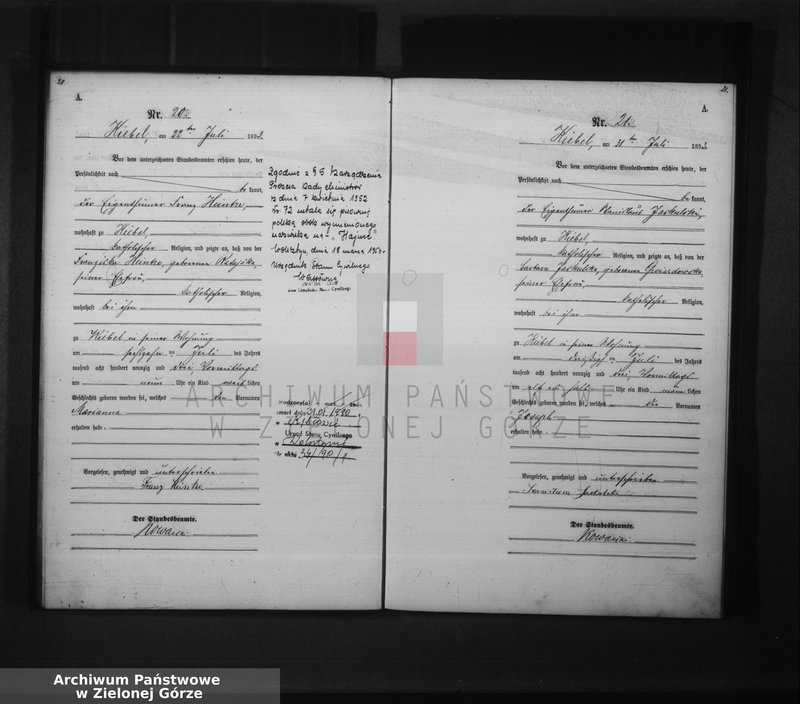 20.
A.
Nr. 20.
Kiebel, am 22ten Juli 1893.
Vor dem unterzeichneten Standesbeamten erschien heute, der
Persönlichkeit nach
be kannt,
der Eigenthümer Franz
wohnhaft zu Kiebel,
katholischer Religion, und zeigte an, daß von der
Franziska geborene
seiner Ehefrau,
katholischer Religion,
wohnhaft bei ihm
zu Kiebel in seiner Wohnung
am sechszehn ten Juli des Jahres
tausend acht hundert neunzig und drei, Vormittags
um neun Uhr ein Kind weib lichen
Geschlechts geboren worden sei, welches den Vornamen
Marianna
erhalten habe.
Vorgelesen, genehmigt und unterschrieben
Franz
Der Standesbeamte.
Zgodnie z § 5 Zarządzenia
Prezesa Rady Ministrów
z dnia 7 kwietnia 1952
Nr. 72 ustala się pisownię
polską obok wymienionego
nazwiska na "Hajnce"
Wolsztyn dnia 18 marca 1953 r.
Urzędnik Stanu Cywilnego
zmarł dnia 31.01.1990 r.
w
Urząd Stanu Cywilnego
w
Nr aktu 34/90/1
21.
A.
Nr. 21.
Kiebel, am 31ten Juli 1893.
Vor dem unterzeichneten Standesbeamten erschien heute, der
Persönlichkeit nach
be kannt,
der Eigenthümer
wohnhaft zu Kiebel,
katholischer Religion, und zeigte an, daß von der
Barbara geborene
seiner Ehefrau,
katholischer Religion,
wohnhaft bei ihm
zu Kiebel in seiner Wohnung
am dreißig ten Juli des Jahres
tausend acht hundert neunzig und drei, Vormittags
um Uhr ein Kind männ lichen
Geschlechts geboren worden sei, welches den Vornamen
Joseph
erhalten habe.
Vorgelesen, genehmigt und unterschrieben.
Der Standesbeamte.
ARCHIWUM PAŃSTWOWE
W ZIELONEJ GÓRZE
Archiwum Państwowe
w Zielonej Górze